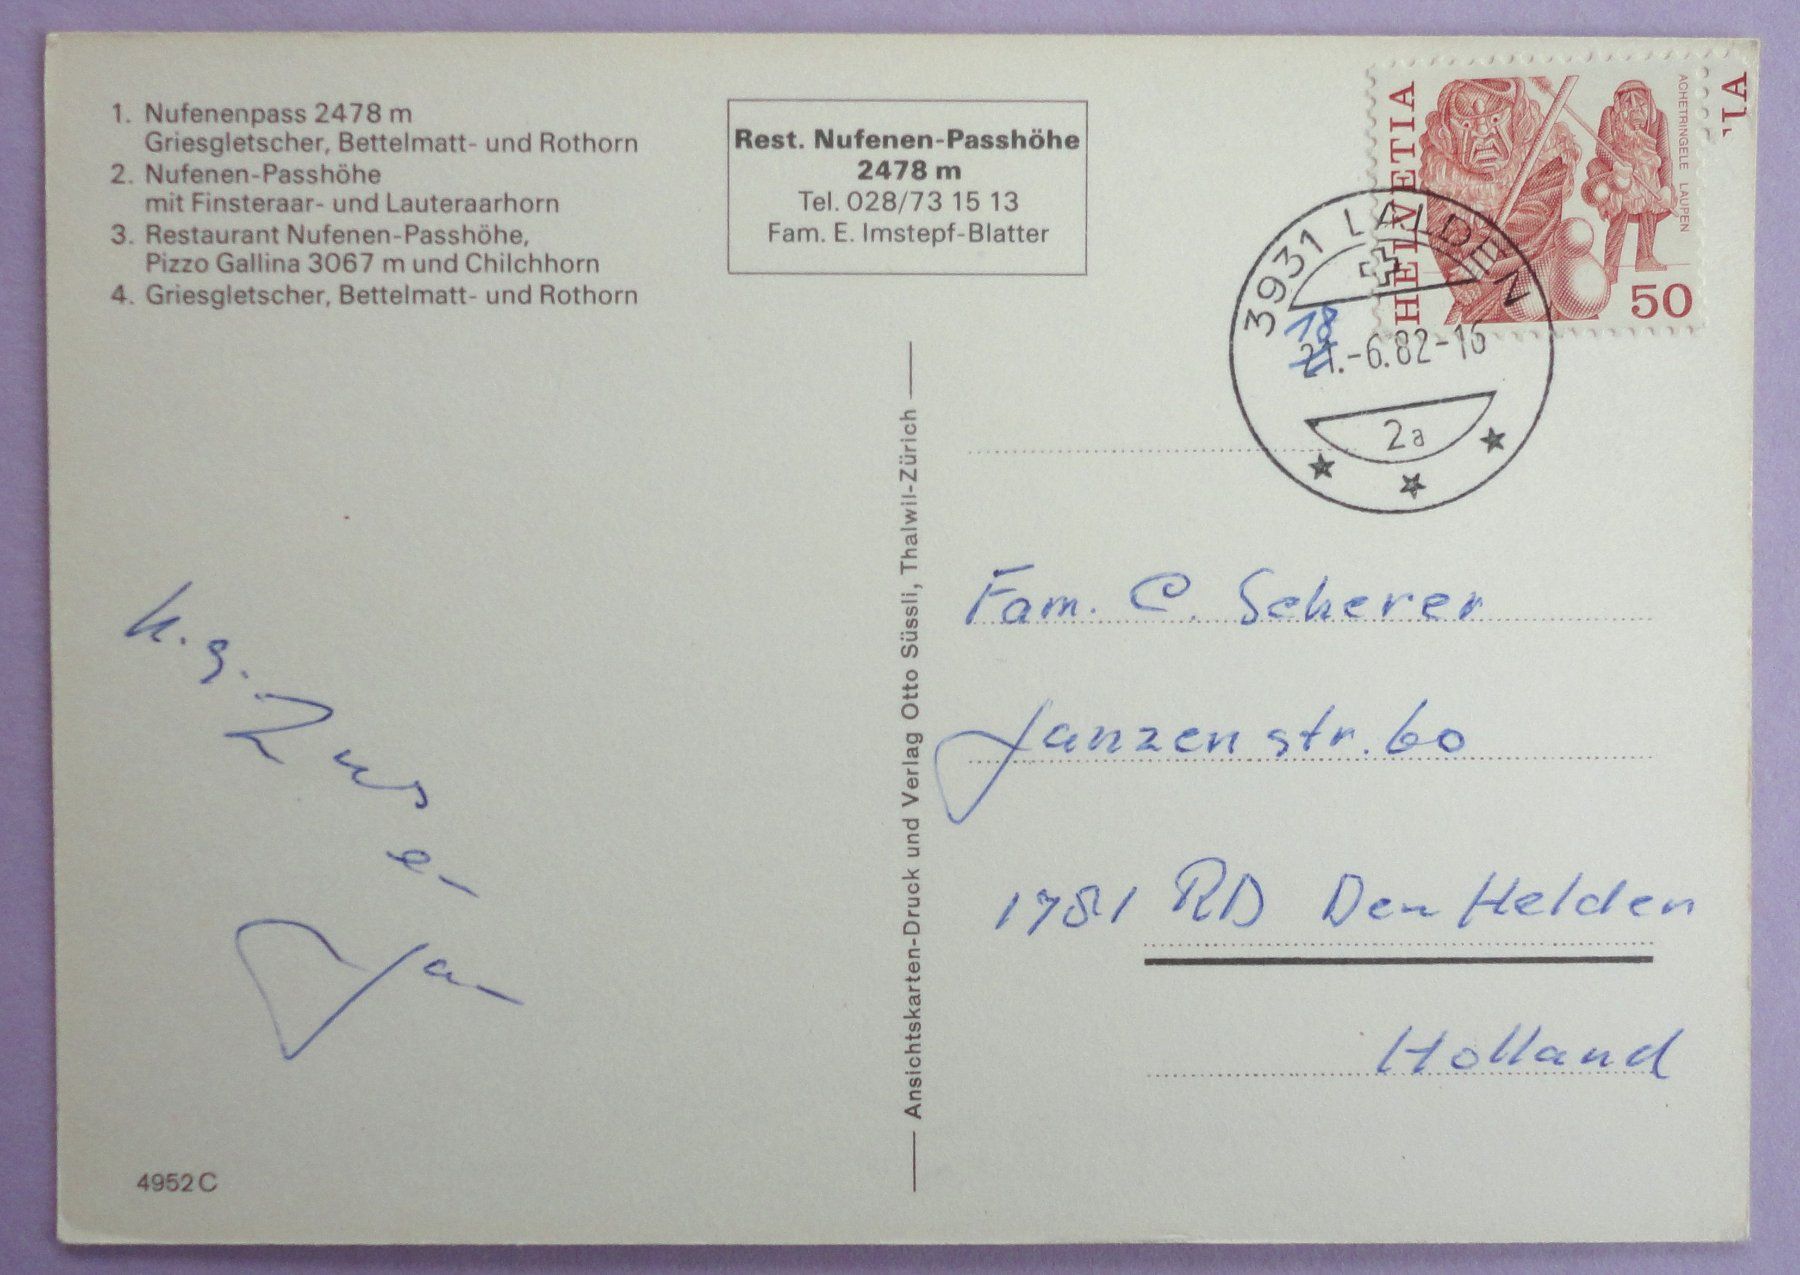 1. Nufenenpass 2478 m
Griesgletscher, Bettelmatt- und Rothorn
2. Nufenen-Passhöhe
mit Finsteraar- und Lauteraarhorn
3. Restaurant Nufenen-Passhöhe,
Pizzo Gallina 3067 m und Chilchhorn
4. Griesgletscher, Bettelmatt- und Rothorn
Rest. Nufenen-Passhöhe
2478 m
Tel. 028/73 15 13
Fam. E. Imstepf-Blatter
HELVETIA
ACHETRINGELE LAUPEN
50
3931 LALDEN
18
21.-6.82-16
2a
Ansichtskarten-Druck und Verlag Otto Süssli, Thalwil-Zürich
Fam. C. Scherer
Janzenstr. 60
1781 RD Den Helden
Holland
h. g.
Jan
4952 C